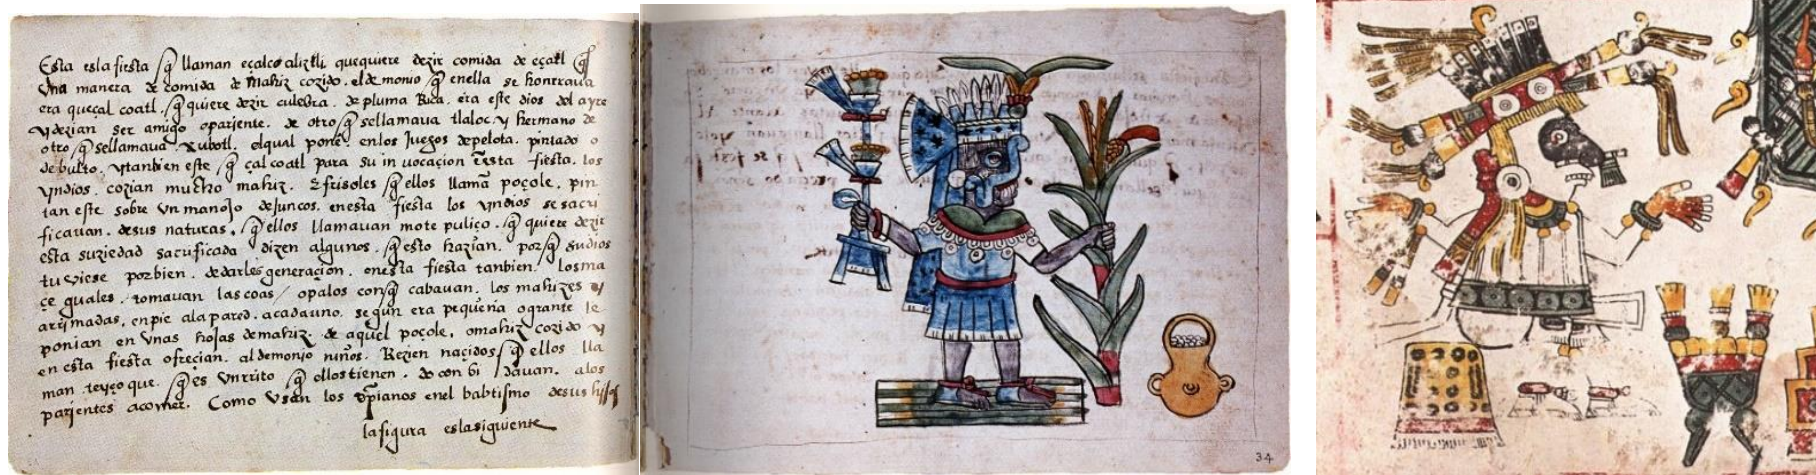 Esta es la fiesta q̃ llaman eçalcoaliztli que quiere dezir comida de eçatl q̃
Vna manera de comida de Mahiz cozido. el demonio q̃ en ella se honrraua
era queçal coatl. q̃ quiere dezir culebra. de pluma Rica. era este dios del ayre
y dezian ser amigo o pariente. de otro q̃ se llamaua tlaloc. y hermano de
otro q̃ se llamaua. Xubotl. el qual ponẽ. en los Juegos de pelota. pintado o
de bulto. y tanbien este q̃ çal coatl para su in vocaçion ẽ esta fiesta. los
yndios. cozian mucho mahiz. E frisoles q̃ ellos llamã poçole. pin
tan este sobre vn manojo de Juncos. en esta fiesta los yndios se sacri
ficauan. de sus naturas. q̃ ellos llamauan mote puliço. q̃ quiere dezir
esta suziedad sacrificada dizen algunos. q̃ esto hazian. por q̃ su dios
tu viese por bien. de darles generaçion. en esta fiesta tanbien. los ma
çe guales. tomauan las coas / o palos con q̃ cabauan. los mahizes y
arrimadas. en pie a la pared. a cada uno. segun era pequeña o grante le
ponian en vnas hojas de mahiz. de aquel poçole. o mahiz cozido y
en esta fiesta ofreçian. al demonio niños. Rezien naçidos q̃ ellos lla
man teyço que. q̃ es vn rrito q̃ ellos tienen. do con bi dauan. a los
parientes a comer. Como vsan los xp̃ianos en el babtismo de sus hijos
la figura es la siguiente
34